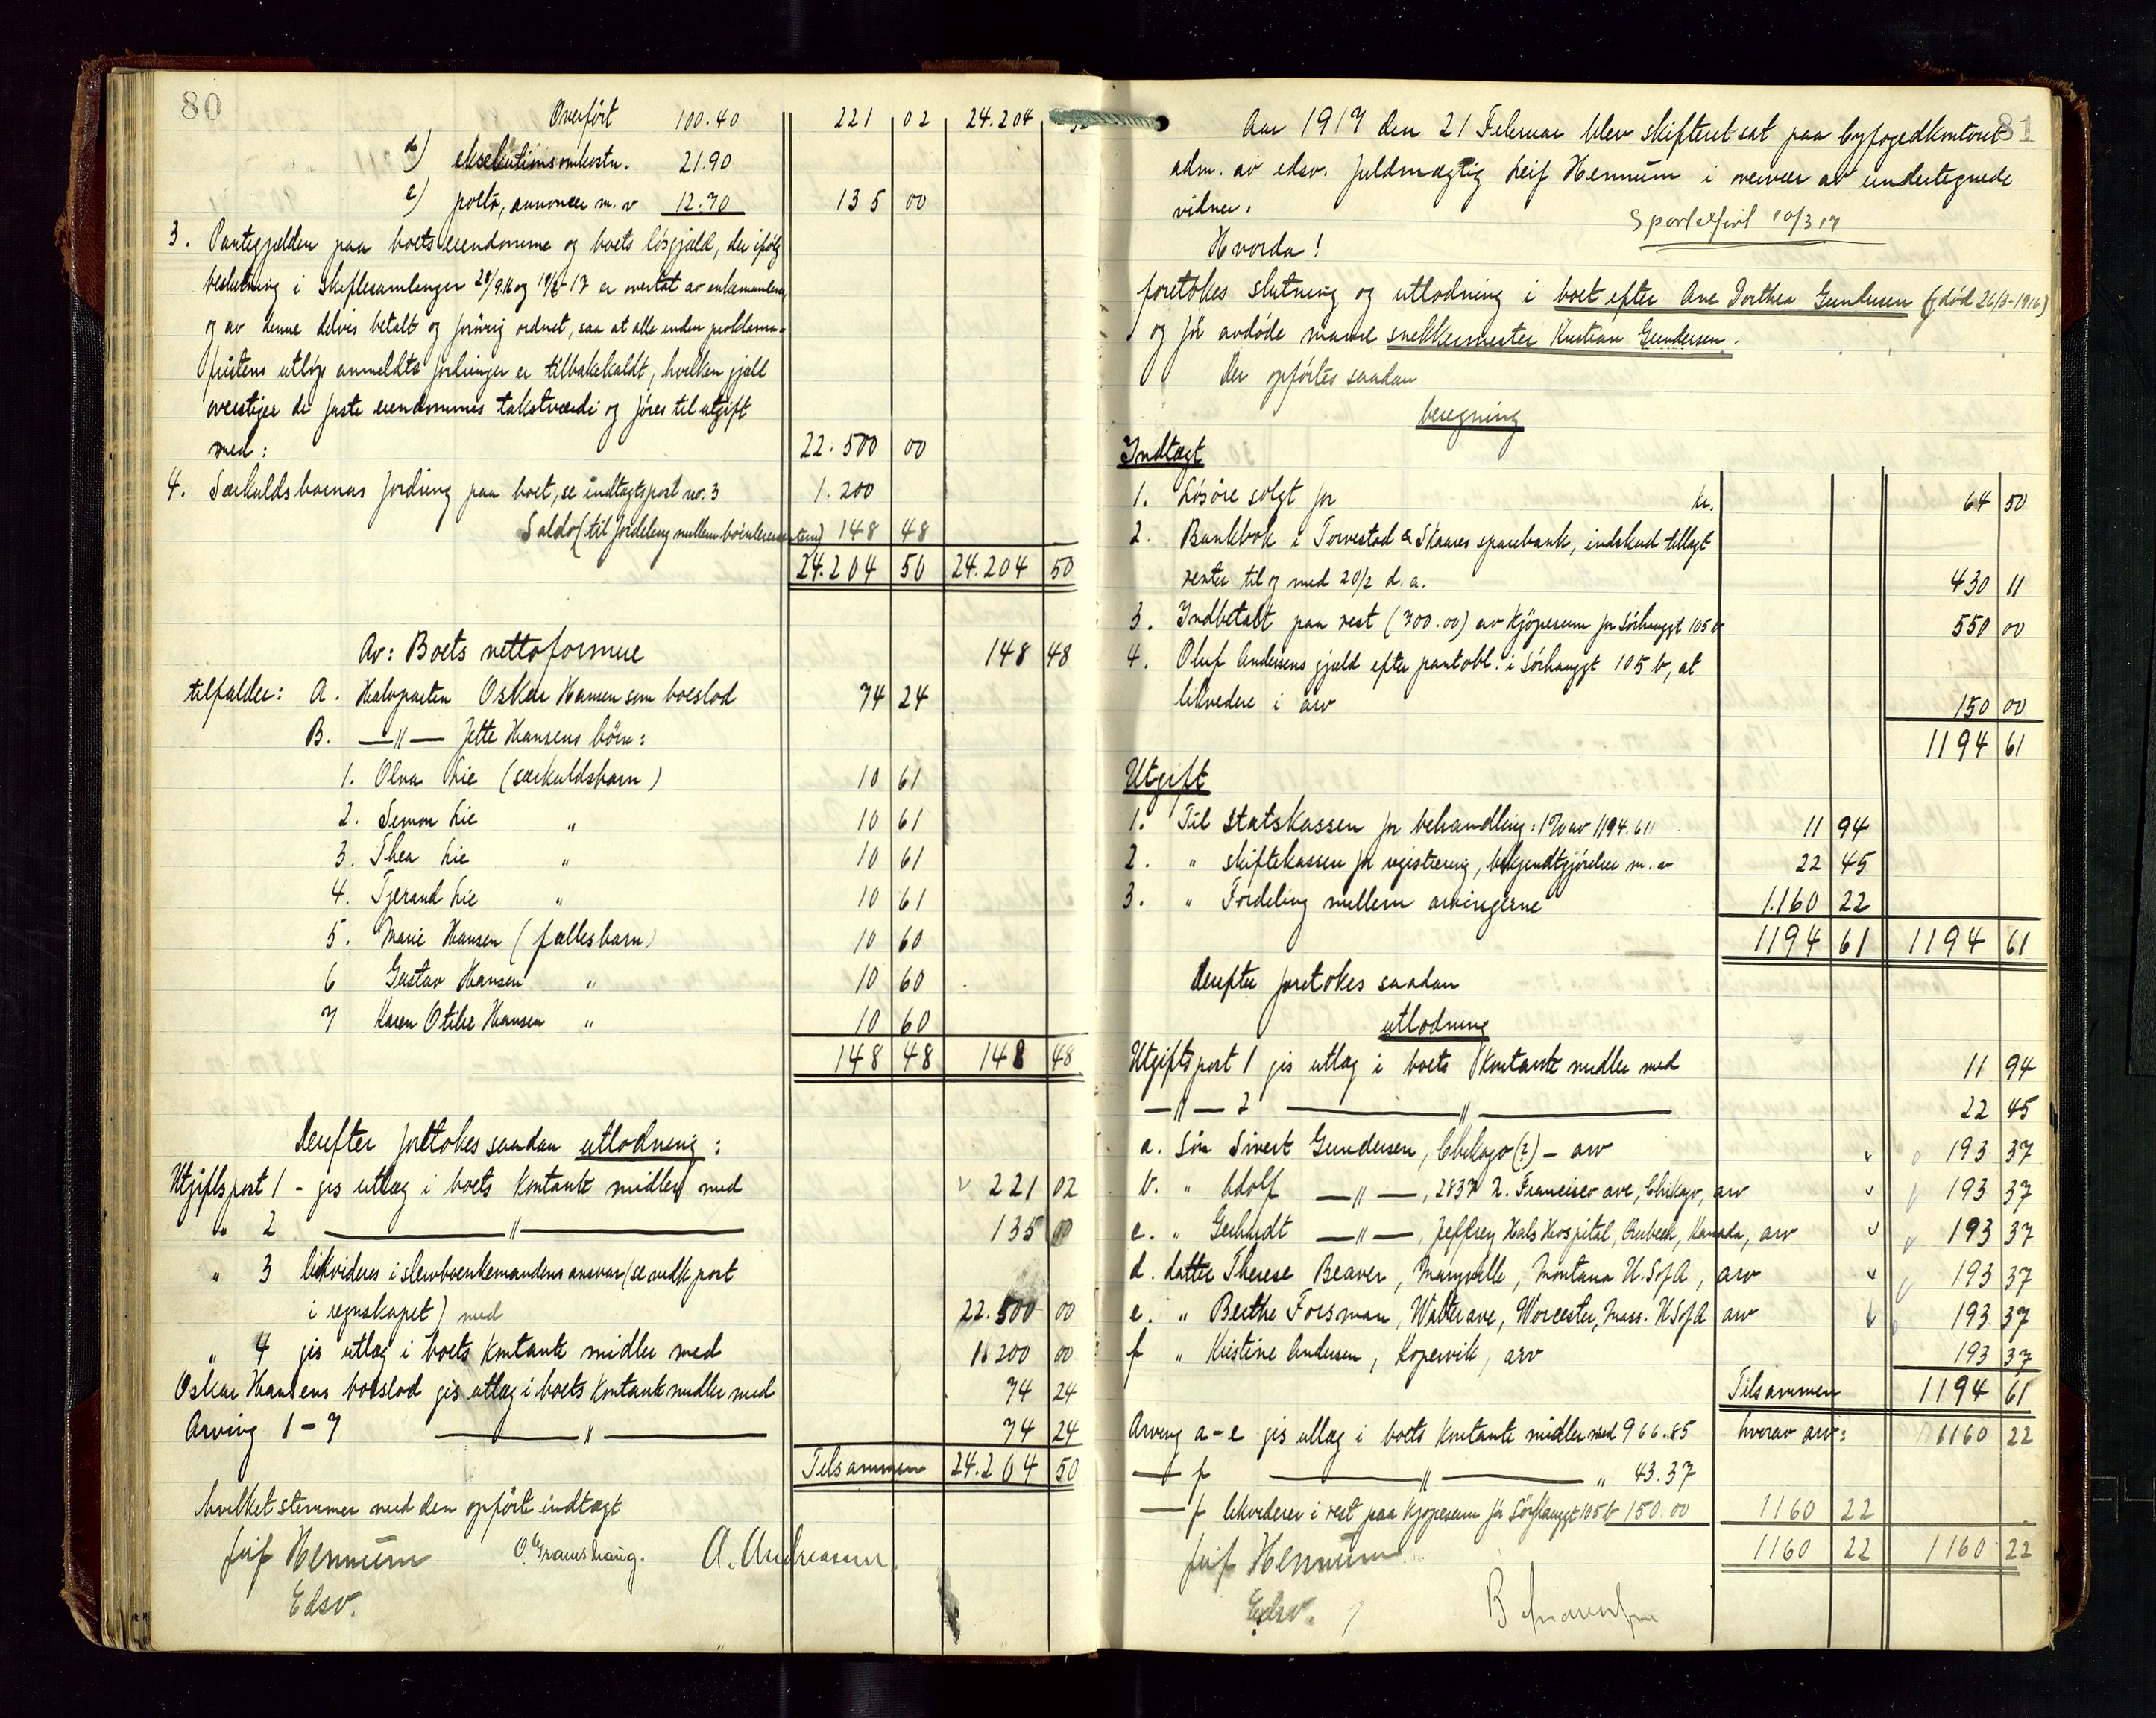 80
Overført 100.40 221 02 24.204
d) eksekutionsomkostn. 21.90
e) porto, annoncer m.v 12.70 135 00
3. Pantegjælden paa boets eiendomme og boets løsgjæld, der ifølg
beslutning i skiftesamlinger 28/9.16 og 19/2-17 er overtat av enkemanden
og av denne delvis betalt og forøvrig ordnet, saa at alle inden proklama-
fristens utløp anmeldte fordringer er tilbakekaldt, hvilken gjæld
overstiger de faste eiendommes takstværdi og føres til utgift
med: 22.500 00
4. Særkuldsbarnas fordring paa boet, se indtægtspost no. 3 1.200
Saldo (til fordeling mellem 148 48
24.204 50 24.204 50
Av: Boets nettoformue 148 48
tilfalder: A. Halvparten Oskar Hansen som boeslod 74 24
B. —"— Jette Hansens børn:
1. Olva Lie (særkuldsbarn) 10 61
2. Simon Lie " 10 61
3. Thea Lie " 10 61
4. Tjerand Lie " 10 61
5. Marie Hansen (fællesbarn) 10 60
6 Gustav Hansen " 10 60
7 Karen Otilie Hansen " 10 60
148 48 148 48
Derefter foretokes saadan utlodning:
Utgiftspost 1 - gis utlæg i boets kontante midler med 221 02
" 2 —"— 135 00
" 3 likvideres i stervboenkemandens ansvar (se nedk post
i regnskapet) med 22.500 00
" 4 gis utlæg i boets kontante midler med 1200 00
Oskar Hansens boeslod gis utlæg i boets kontante midler med 74 24
Arving 1-7 —"— 74 24
Tilsammen 24.204 50
hvilket stemmer med den opførte indtægt
Leif Hennum O. Gramshaug. A. Andreassen.
Edsv.
81
Aar 1917 den 21 Februar blev skifteret sat paa byfogedkontoret
adm. av edsv. fuldmægtig Leif Hennum i overvær av undertegnede
vidner.
Sportelført 10/3 17
Hvorda!
foretokes slutning og utlodning i boet efter Ane Dorthea Gundersen (død 26/3-1916)
og før avdøde mand snekkermester Kristian Gundersen.
Der opførtes saadan
beregning
Indtægt
1. Løsøre solgt for kr. 64 50
2. Bankbok i Torvestad & Skaares sparebank, indskud tillagt
renter til og med 20/2 d. a. 430 11
3. Indbetalt paa rest (700.00) av kjøpesum for Sørhauggt 105 b 550 00
4. Oluf Andersens gjæld efter pantobl. i Sørhauggt 105 b, at
likvidere i arv 150 00
1194 61
Utgift
1. Til statskassen for behandling: 1% av 1194.61 11 94
2. " skiftekassen for registrering, bekjendtgjørelser m. v 22 45
3. " Fordeling mellem arvingerne 1.160 22
1194 61 1194 61
Derefter foretokes saadan
utlodning
Utgiftspost 1 gis utlæg i boets kontante midler med 11 94
—"— 2 —"— 22 45
a. Søn Sivert Gundersen, Chikago (?) - arv 193 37
b. " Adolf —"—, 2837 N. Francisco ave, Chikago, arv 193 37
c. " Gerhardt —"—, Jeffrey Hals Hospital, Qubeck, Kanada, arv 193 37
d. Datter Therese Beaver, Marysville, Montana U.S of A, arv 193 37
e. " Berthe Forsman, Walter ave, Worcester, Mass. U S of A arv 193 37
f " Kristine Andersen, Kopervik, arv 193 37
Tilsammen 1194 61
Arving a-e gis utlæg i boets kontante midler med 966.85 hvorav arv: 1160 22
— f —"— " 43.37
— f likvideres i rest paa kjøpesum for Sørhauggt 105 b 150.00 1160 22
1160 22 1160 22
Leif Hennum
Edsv.